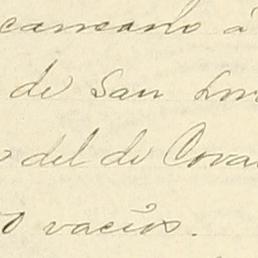 cansano á
de San Lor
del de Cova
0 vacíos.